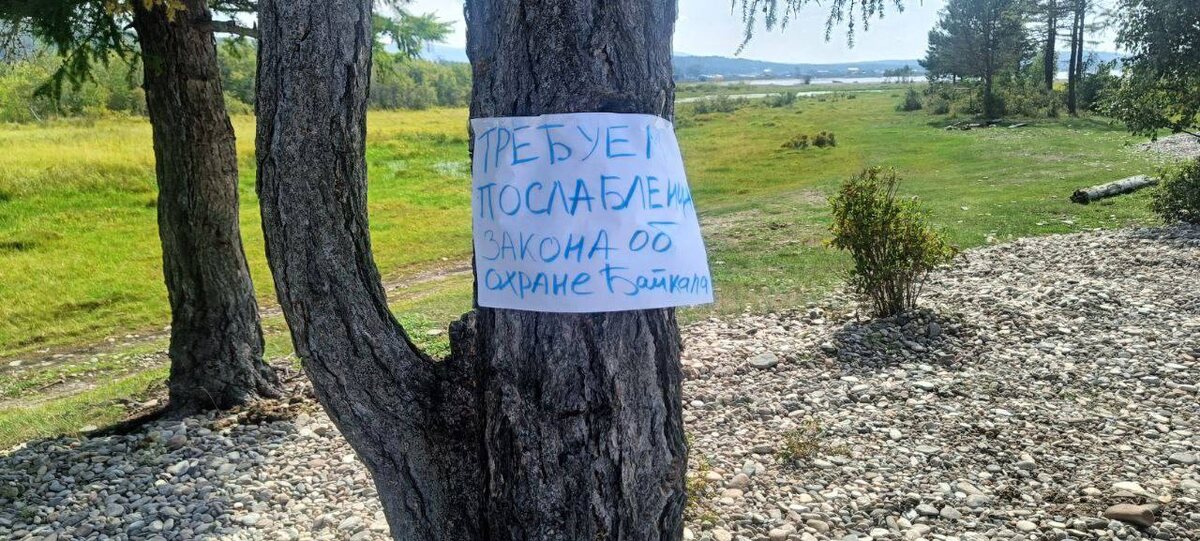 ТРЕБУЕМ
ПОСЛАБЛЕНИЯ
ЗАКОНА ОБ
ОХРАНЕ Байкала